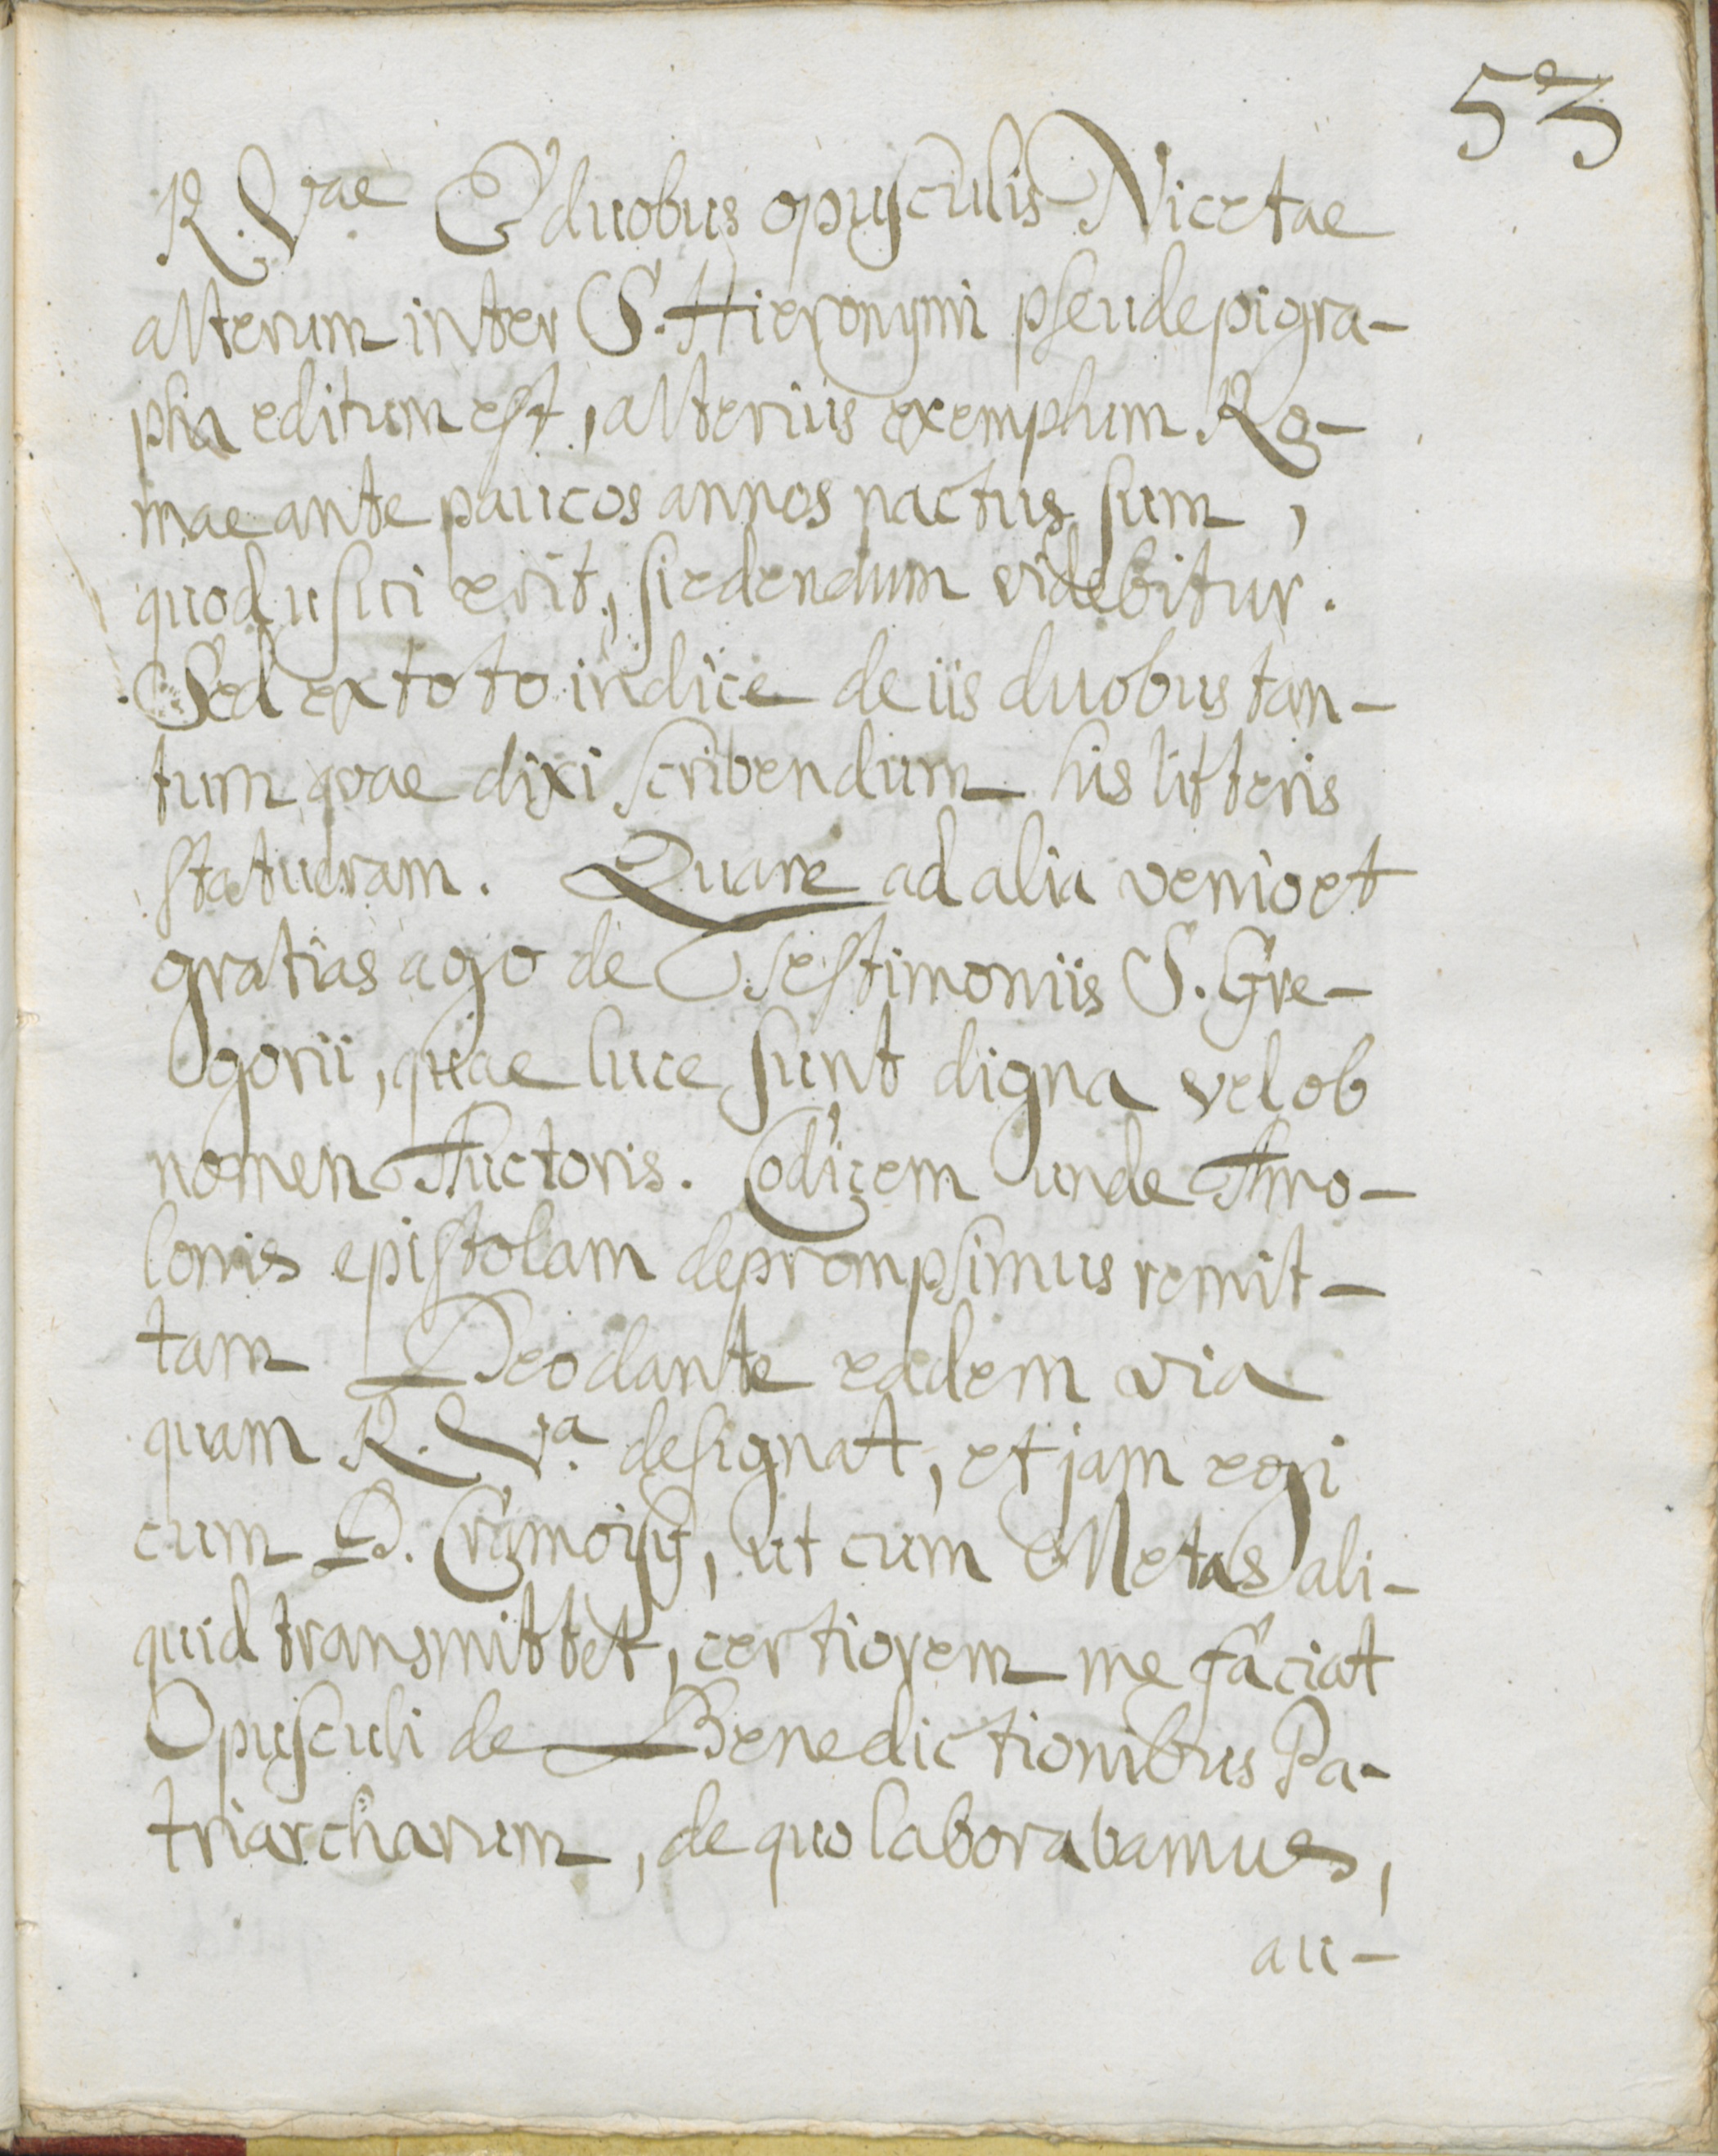 53
R. Vae E duobus opusculis Nicetae
alterum inter S. Hieronymi pseudepigra-
pha editum est, alterius exemplum Ro-
mae ante paucos annos nactus sum,
quod usui erit, si edendum videbitur.
Sed ex toto indice de iis duobus tan-
tum quae dixi scribendum his litteris
statueram. Quare ad alia venio et
gratias ago de Testimoniis S. Gre-
gorii, quae luce sunt digna vel ob
nomen Auctoris. Codicem unde Amo-
lonis epistolam deprompsimus remit-
tam Deo dante eadem via
quam R. Va. designat, et jam egi
cum D. Cramoisy, ut cum Metas ali-
quid transmittet, certiorem me faciat
Opusculi de Benedictionibus Pa-
triarcharum, de quo laborabamus,
au-